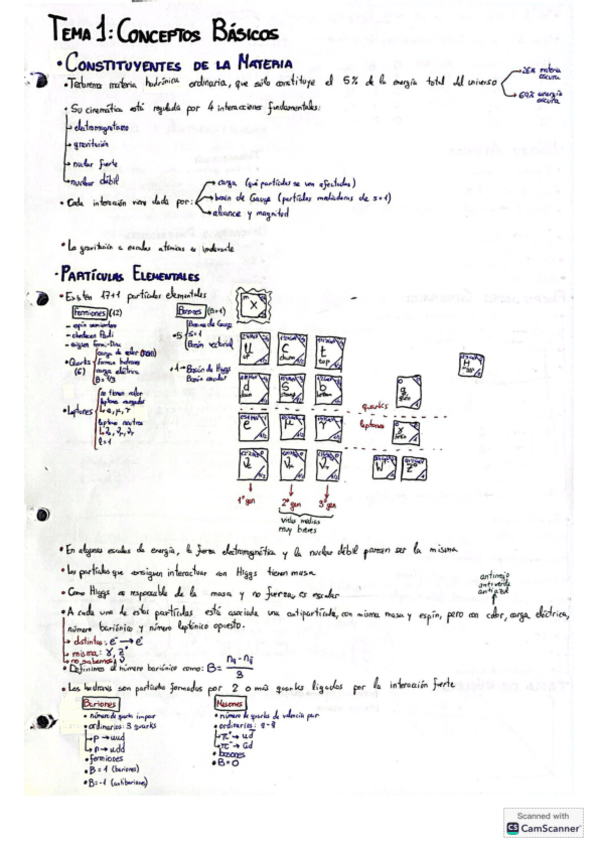 TEMA 1: CONCEPTOS BÁSICOS
• CONSTITUYENTES DE LA MATERIA
materia hadrónica ordinaria, que solo constituye el 5% de la energía total del universo
26% materia oscura
69% energía oscura
• Su cinemática está regulada por 4 interacciones fundamentales:
electromagnetismo
gravitación
nuclear fuerte
nuclear débil
• Cada interacción viene dada por:
carga (qué partículas se ven afectadas)
bosón de Gauge (partículas mediadoras de s=1)
alcance y magnitud
• La gravitación a escalas atómicas es irrelevante
• PARTÍCULAS ELEMENTALES
• Existen 17+1 partículas elementales
Fermiones (12)
- espín semientero
- obedecen Pauli
- siguen Fermi-Dirac
• Quarks (6)
carga de color
forman hadrones
carga eléctrica
B = 1/3
• Leptones
no tienen color
leptones cargados
e, μ, τ
leptones neutros
l=1
Bosones
• 5
Bosones de Gauge
s=1
Bosón vectorial
• 1
Bosón de Higgs
Bosón escalar
X
u
c charm
t top
H
d down
s strange
b bottom
g
quarks
leptones
e
μ
τ
γ
νe
W
Z⁰
1ª gen
2ª gen
3ª gen
vidas medias
muy breves
• En algunas escalas de energía, la fuerza electromagnética y la nuclear débil parecen ser la misma
• Las partículas que consiguen interactuar con Higgs tienen masa
• Como Higgs es responsable de la masa y no fuerza, es escalar
antirrojo
antiverde
antiazul
• A cada una de estas partículas está asociada una antipartícula, con misma masa y espín, pero con color, carga eléctrica,
número bariónico y número leptónico opuesto.
distintas: e⁻ → e⁺
misma: γ, Z⁰
no sabemos: ν
• Definimos el número bariónico como: B = (nq - nq̄)/3
• Los hadrones son partículas formadas por 2 o más quarks ligados por la interacción fuerte
Bariones
• número de quarks impar
• ordinarios: 3 quarks
p → uud
n → udd
• fermiones
• B = 1 (bariones)
• B = -1 (antibariones)
Mesones
• número de quarks de valencia par
• ordinarios: q - q̄
π⁺ → ud̄
π⁻ → ūd
• bosones
• B = 0
Scanned with
CS CamScanner